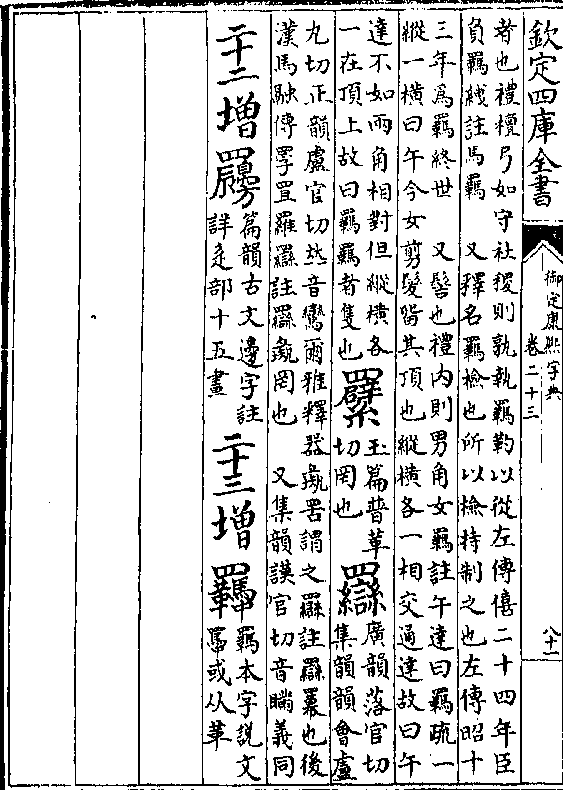 欽定四庫全書
御定康熙字典
卷二十三
八十一
者也禮檀弓如守社稷則孰執羈靮以從左傳僖二十四年臣
負羈絏註馬羈　又釋名羈檢也所以檢持制之也左傳昭十
三年爲羈終世　又髻也禮內則男角女羈註午達曰羈疏一
縱一橫曰午今女剪髮留其頂也縱橫各一相交通達故曰午
達不如兩角相對但縱橫各
一在頂上故曰羈羈者隻也
玉篇普革
切罔也
羉
廣韻落官切
集韻韻會盧
丸切正韻盧官切𠀤音鸞爾雅釋器彘罟謂之羉註羉幕也後
漢馬融傳罦罝羅羉註羉彘罔也　又集韻謨官切音瞞義同
二十二增
篇韻古文邊字註
詳辵部十五畫
二十三增
羈本字說文
或从革